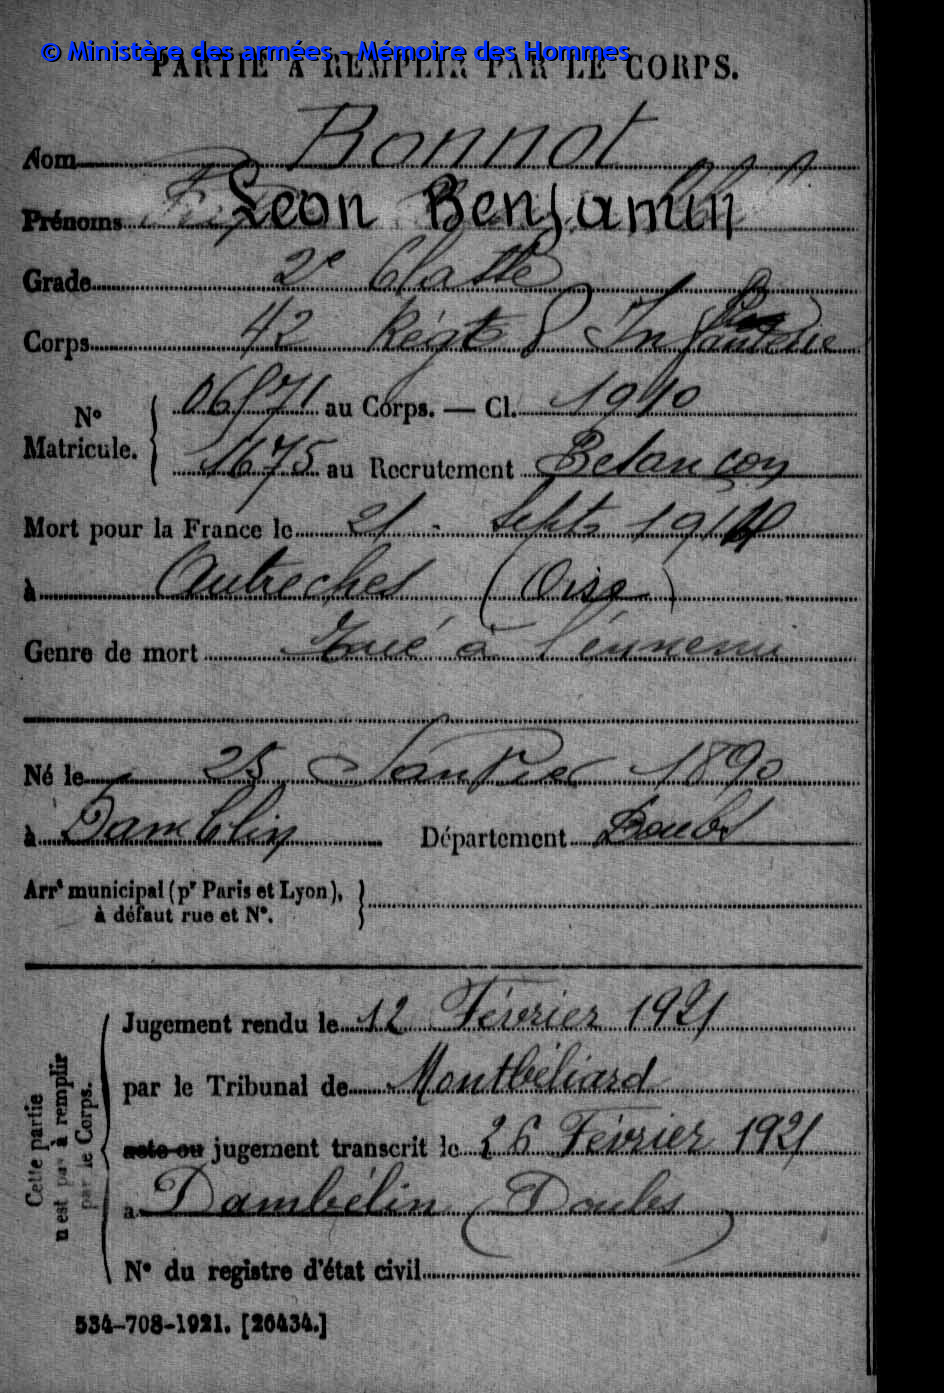 © Ministère des armées - Mémoire des Hommes
PARTIE À REMPLIR PAR LE CORPS.
Nom Bonnot
Prénoms Léon Benjamin
Grade 2e Classe
Corps 42 Régt d'Infanterie
N° Matricule. 06571 au Corps. — Cl. 1910
1675 au Recrutement Besançon
Mort pour la France le 21 - Septe 1914
à Autreches (Oise)
Genre de mort Tué à l'ennemi
Né le 25 Janvier 1890
à Damblin Département Doubs
Arrt municipal (pr Paris et Lyon),
à défaut rue et N°.
Cette partie
n'est pas à remplir
par le Corps.
Jugement rendu le 12 Février 1921
par le Tribunal de Montbéliard
acte ou jugement transcrit le 26 Février 1921
à Dambélin (Doubs)
N° du registre d'état civil
534-708-1921. [26434.]